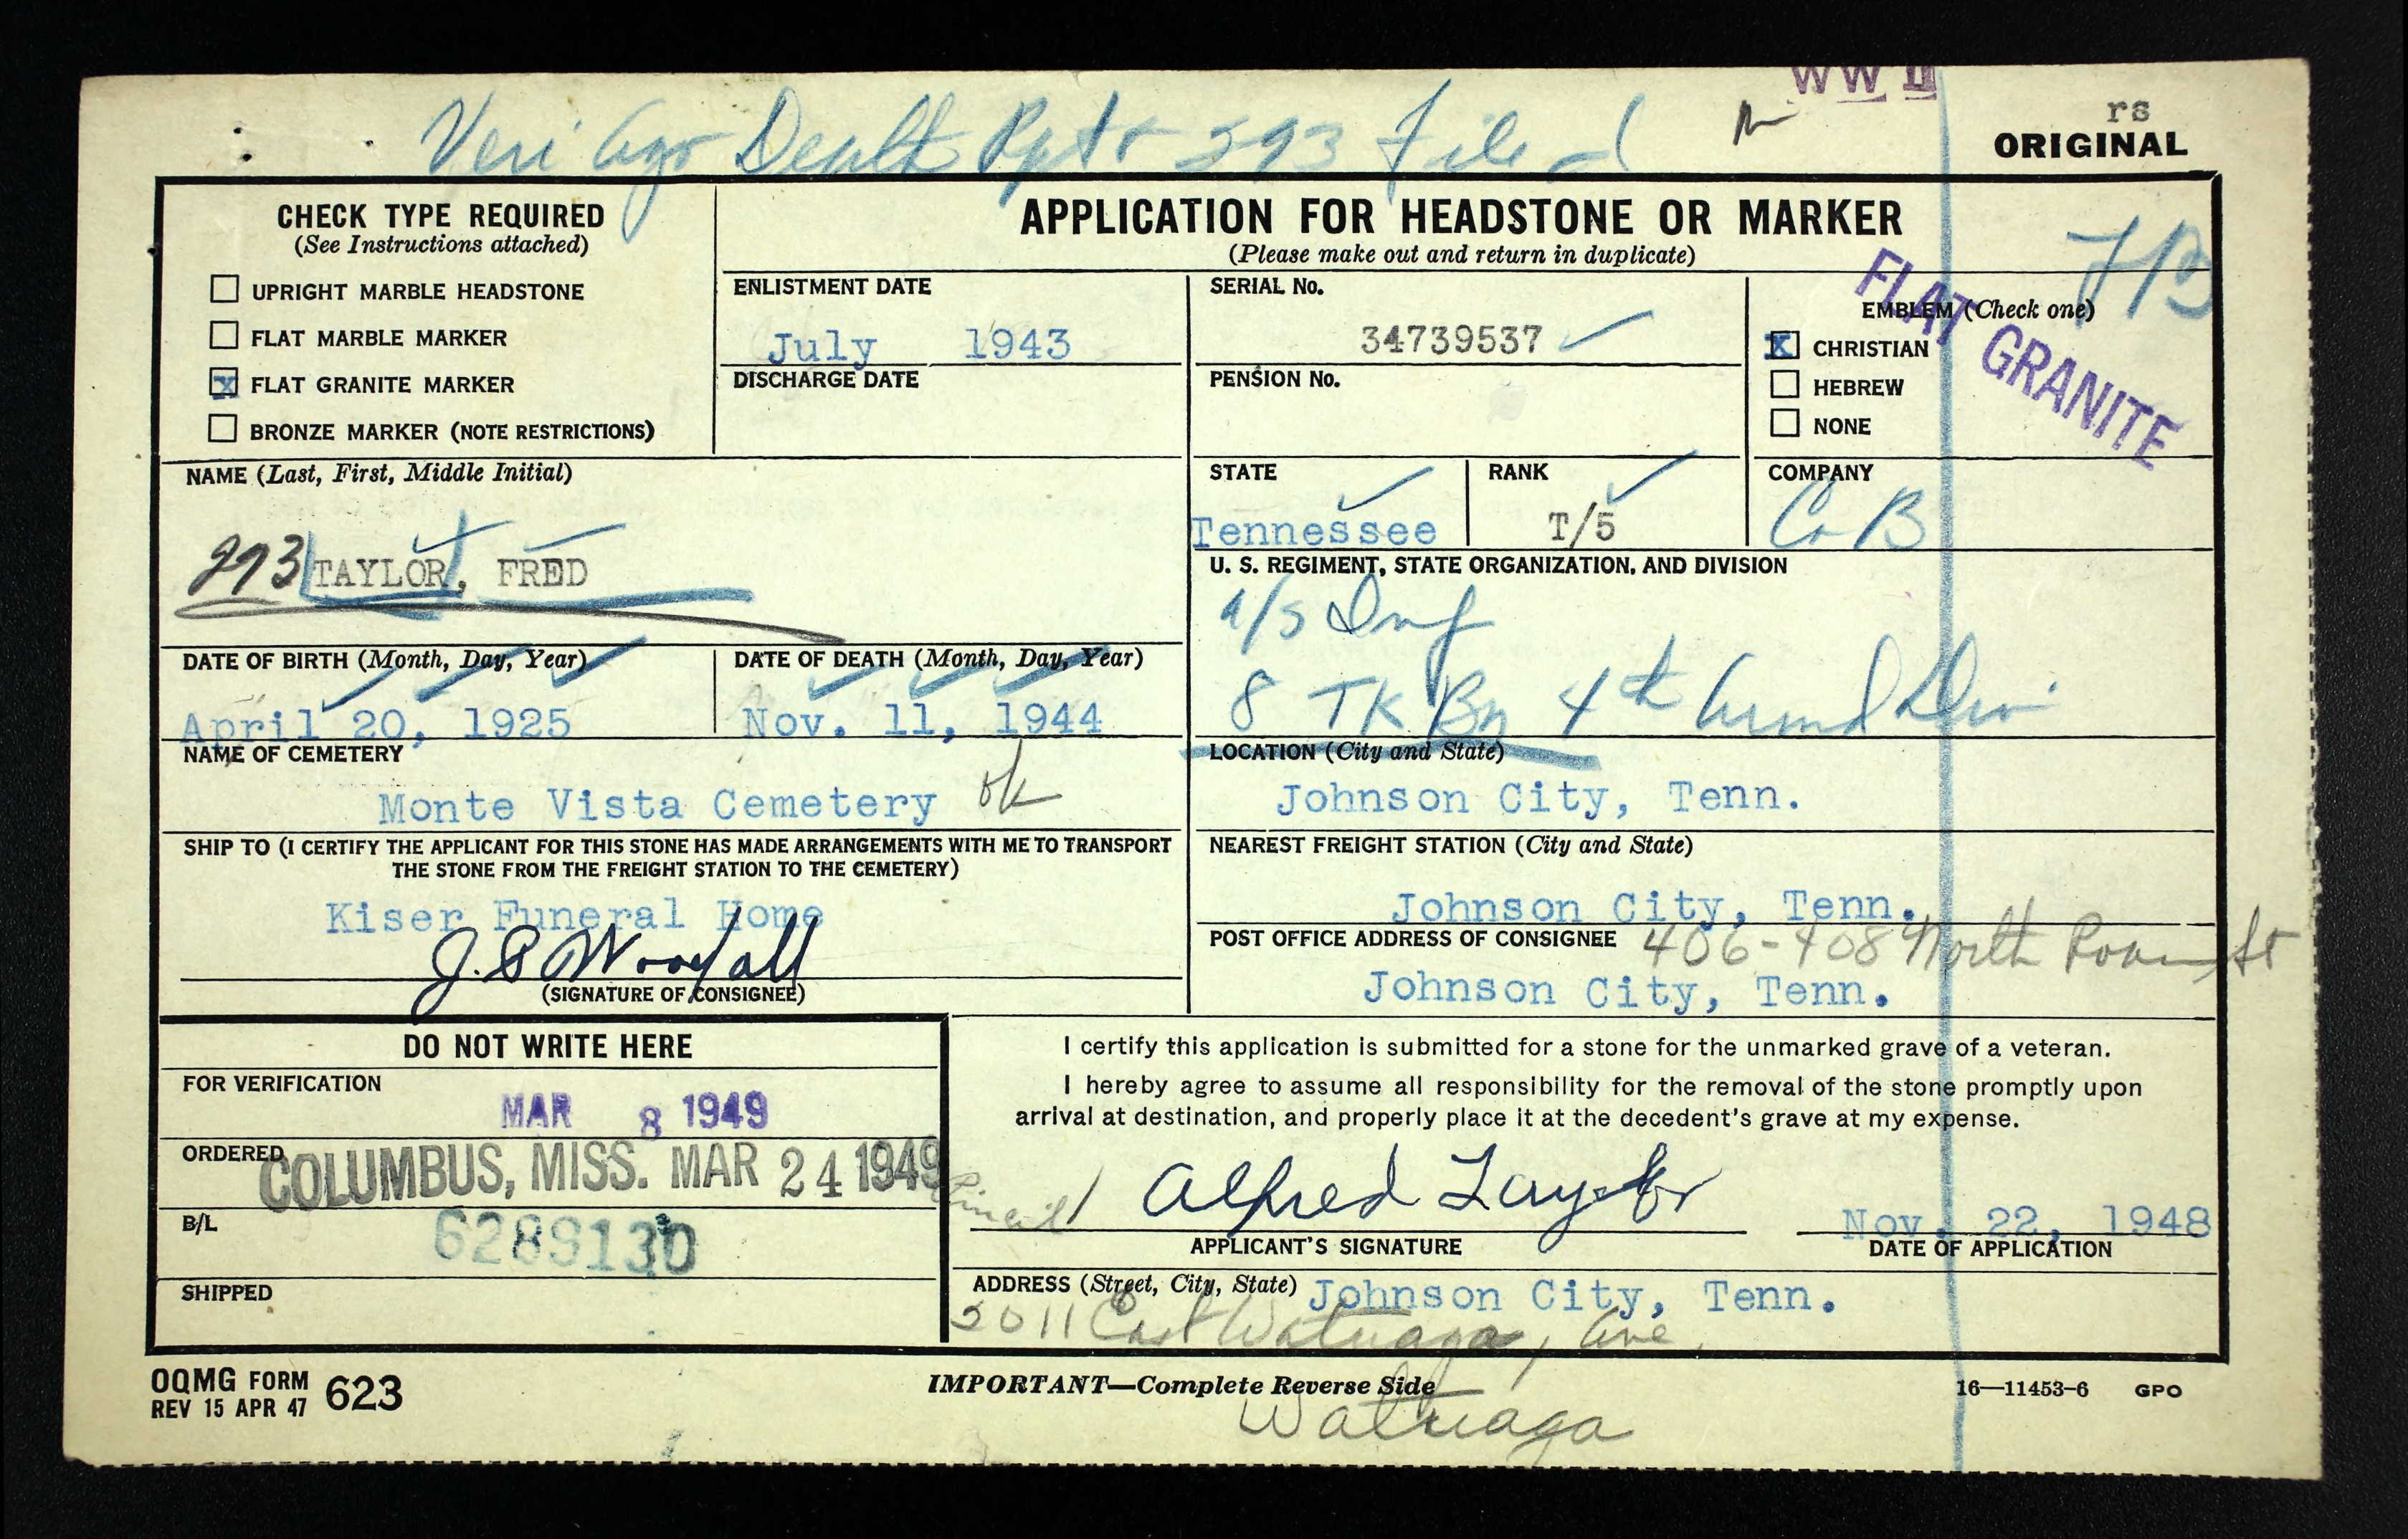 WW II
rs
ORIGINAL
Veri Ago Death Rpt & 293 File
CHECK TYPE REQUIRED
(See Instructions attached)
UPRIGHT MARBLE HEADSTONE
FLAT MARBLE MARKER
X FLAT GRANITE MARKER
BRONZE MARKER (NOTE RESTRICTIONS)
APPLICATION FOR HEADSTONE OR MARKER
(Please make out and return in duplicate)
ENLISTMENT DATE
July 1943
DISCHARGE DATE
SERIAL No.
34739537
PENSION No.
EMBLEM (Check one)
X CHRISTIAN
HEBREW
NONE
FLAT GRANITE
NAME (Last, First, Middle Initial)
293 TAYLOR, FRED
STATE
Tennessee
RANK
T/5
COMPANY
Co B
U. S. REGIMENT, STATE ORGANIZATION, AND DIVISION
a/s Inf
8 TK Bn 4th Armd Div
DATE OF BIRTH (Month, Day, Year)
April 20, 1925
DATE OF DEATH (Month, Day, Year)
Nov. 11, 1944
NAME OF CEMETERY
Monte Vista Cemetery ok
LOCATION (City and State)
Johnson City, Tenn.
SHIP TO (I CERTIFY THE APPLICANT FOR THIS STONE HAS MADE ARRANGEMENTS WITH ME TO TRANSPORT
THE STONE FROM THE FREIGHT STATION TO THE CEMETERY)
Kiser Funeral Home
(SIGNATURE OF CONSIGNEE)
NEAREST FREIGHT STATION (City and State)
Johnson City, Tenn.
POST OFFICE ADDRESS OF CONSIGNEE 406-408 North St
Johnson City, Tenn.
DO NOT WRITE HERE
FOR VERIFICATION
MAR 8 1949
ORDERED
COLUMBUS, MISS. MAR 24 1949
B/L
SHIPPED
I certify this application is submitted for a stone for the unmarked grave of a veteran.
I hereby agree to assume all responsibility for the removal of the stone promptly upon
arrival at destination, and properly place it at the decedent's grave at my expense.
Alfred Taylor
APPLICANT'S SIGNATURE
Nov. 22, 1948
DATE OF APPLICATION
ADDRESS (Street, City, State) Johnson City, Tenn.
2011 East Watuaga, Ave
OQMG FORM 623
REV 15 APR 47
IMPORTANT—Complete Reverse Side
16—11453-6 GPO
Watuaga